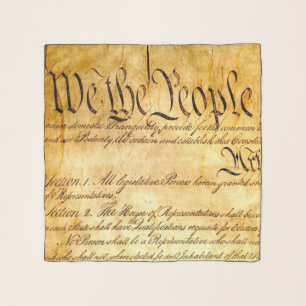 We the People
insure domestic Tranquility, provide for the common d
and our Posterity, do ordain and establish this Constit
Art
Section 1. All legislative Powers herein granted sha
of Representatives.
Section 2. The House of Representatives shall be co
in each State shall have Qualifications requisite for Elector
No Person shall be a Representative who shall not
and who shall not, when elected, be an Inhabitant of that S